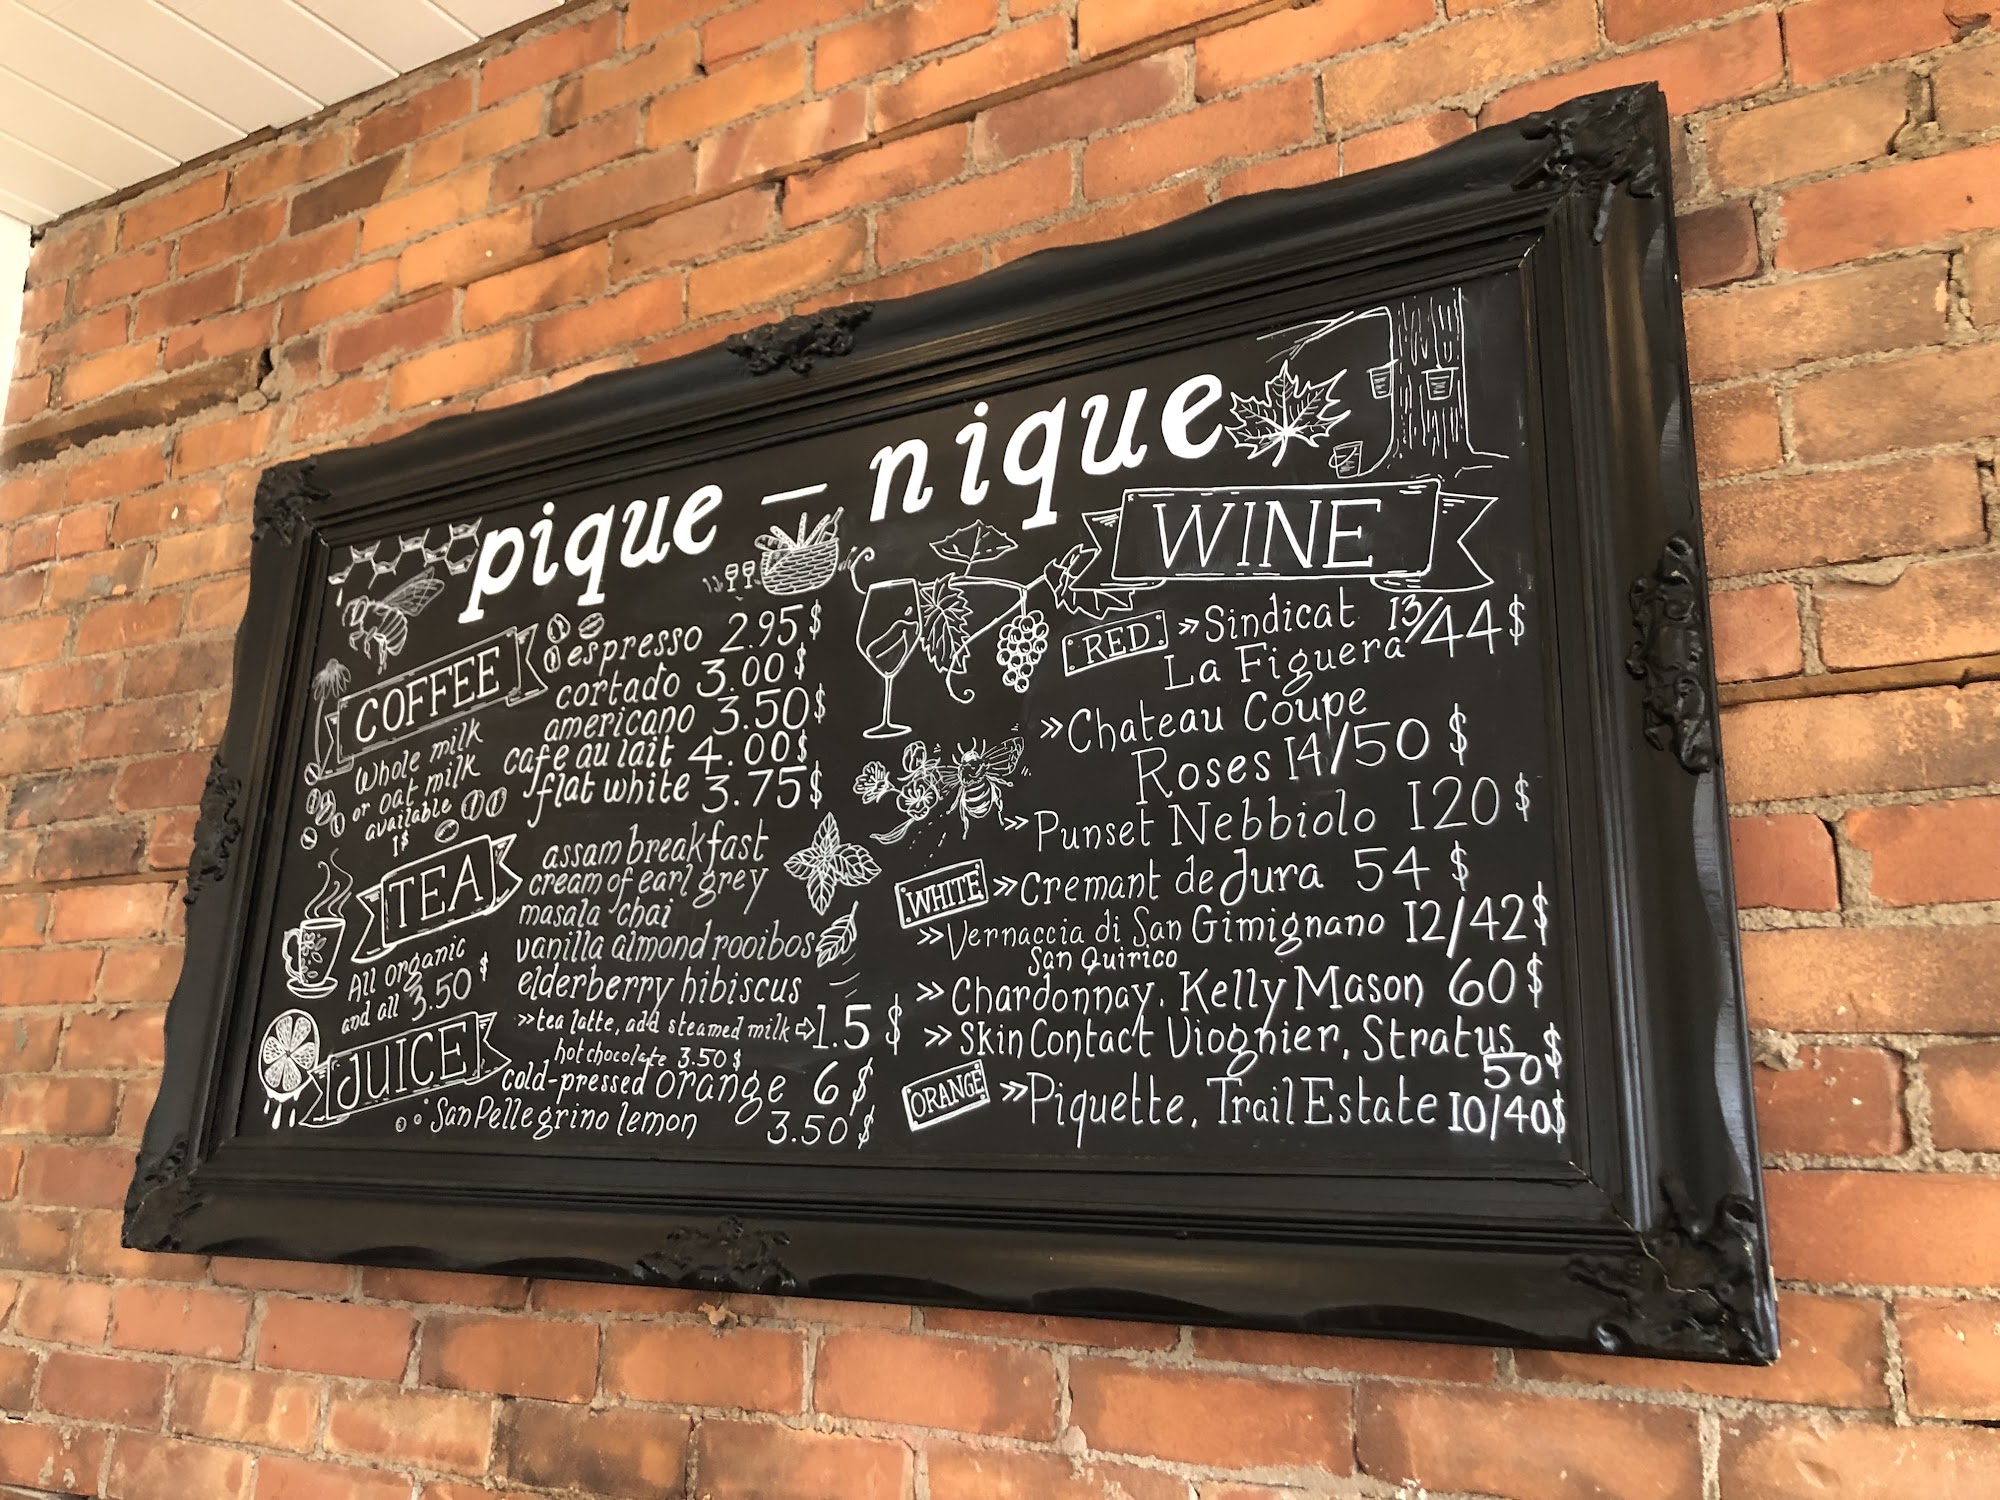 pique – nique
COFFEE
Whole milk
or oat milk
available
1$
espresso 2.95$
cortado 3.00$
americano 3.50$
cafe au lait 4.00$
flat white 3.75$
TEA
All organic
and all 3.50$
assam breakfast
cream of earl grey
masala chai
vanilla almond rooibos
elderberry hibiscus
»tea latte, add steamed milk ⇨1.5$
hot chocolate 3.50$
JUICE
cold-pressed orange 6$
San Pellegrino lemon 3.50$
WINE
RED » Sindicat 13/44$
La Figuera
» Chateau Coupe
Roses 14/50$
» Punset Nebbiolo 120$
WHITE » Cremant de Jura 54$
» Vernaccia di San Gimignano 12/42$
San Quirico
» Chardonnay, Kelly Mason 60$
» Skin Contact Viognier, Stratus
50$
ORANGE » Piquette, Trail Estate 10/40$